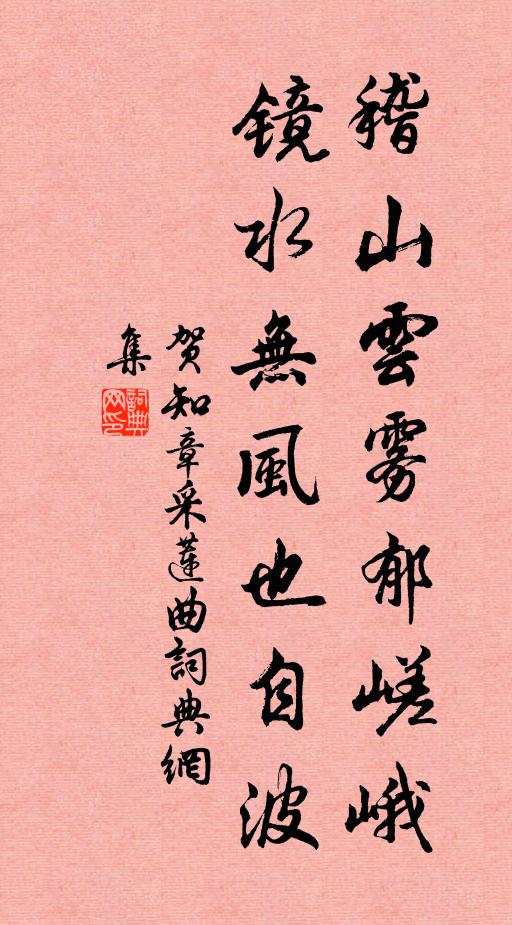 稽山雲雾郁嵯峨
鏡水無風也自波
贺知章采蓮曲詞典網
集
詞典
网印